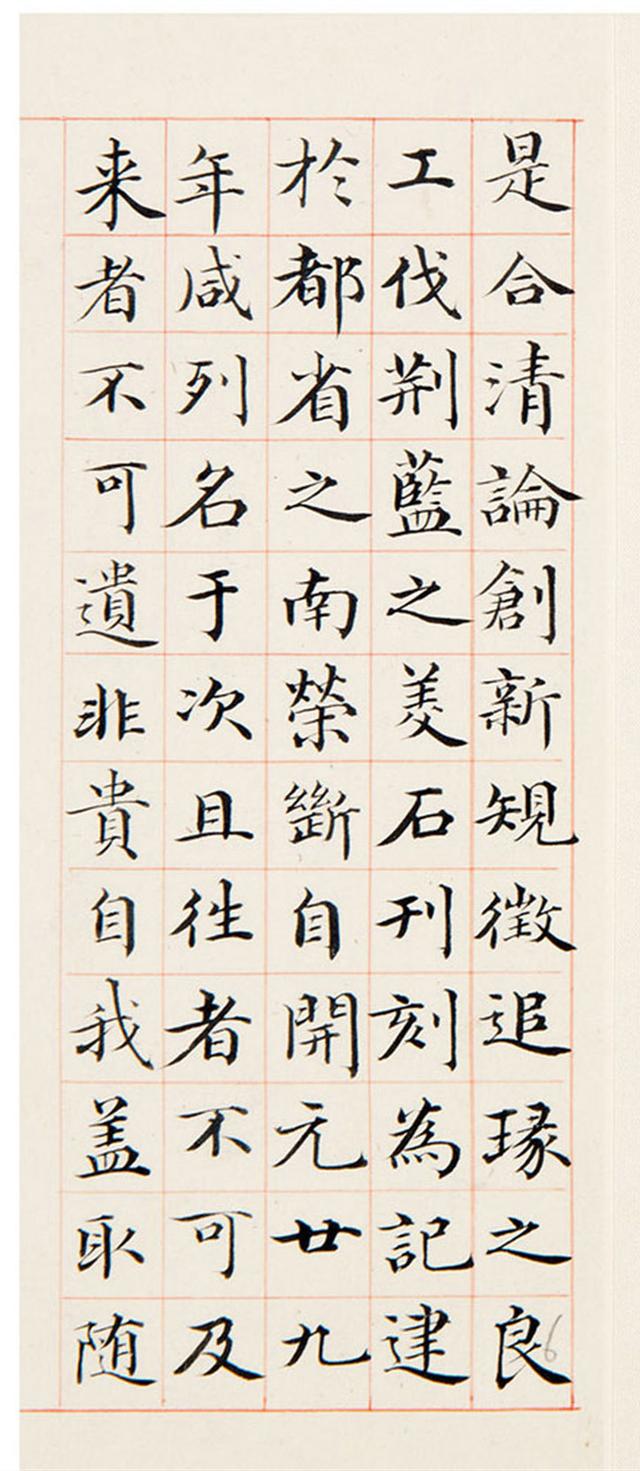 是合清論創新規徵追琢之良
工伐荆藍之美石刊刻為記建
於都省之南榮斷自開元廿九
年咸列名于次且往者不可及
来者不可遺非貴自我盖取随
6